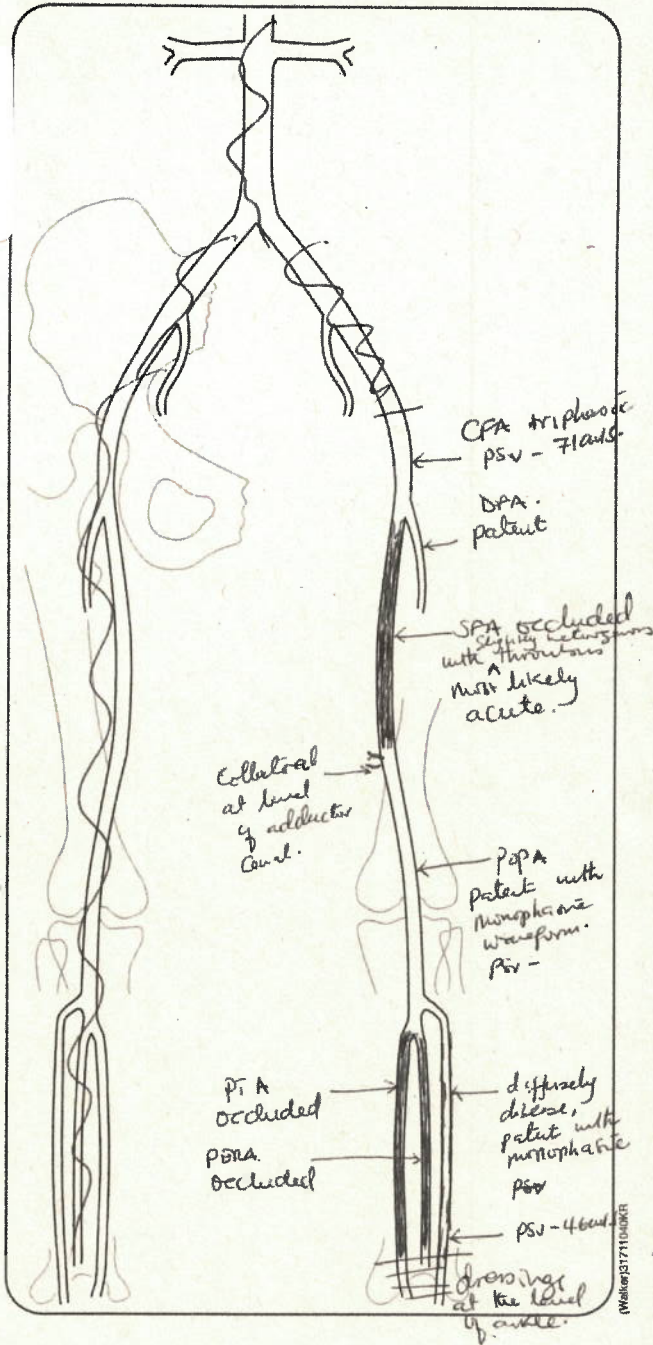 CFA triphasic
PSV - 71cm/s.
DFA.
patent
SFA occluded
slightly heterogenous
with thrombus
most likely
acute.
Collateral
at level
of adductor
canal.
POPA
patent with
monophasic
waveform.
PSV -
PTA
occluded
PERA.
occluded
diffusely
disease,
patent with
monophasic
PSV
PSV - 46cm/s
dressings
at the level
of ankle.
(Walker)31711040KR